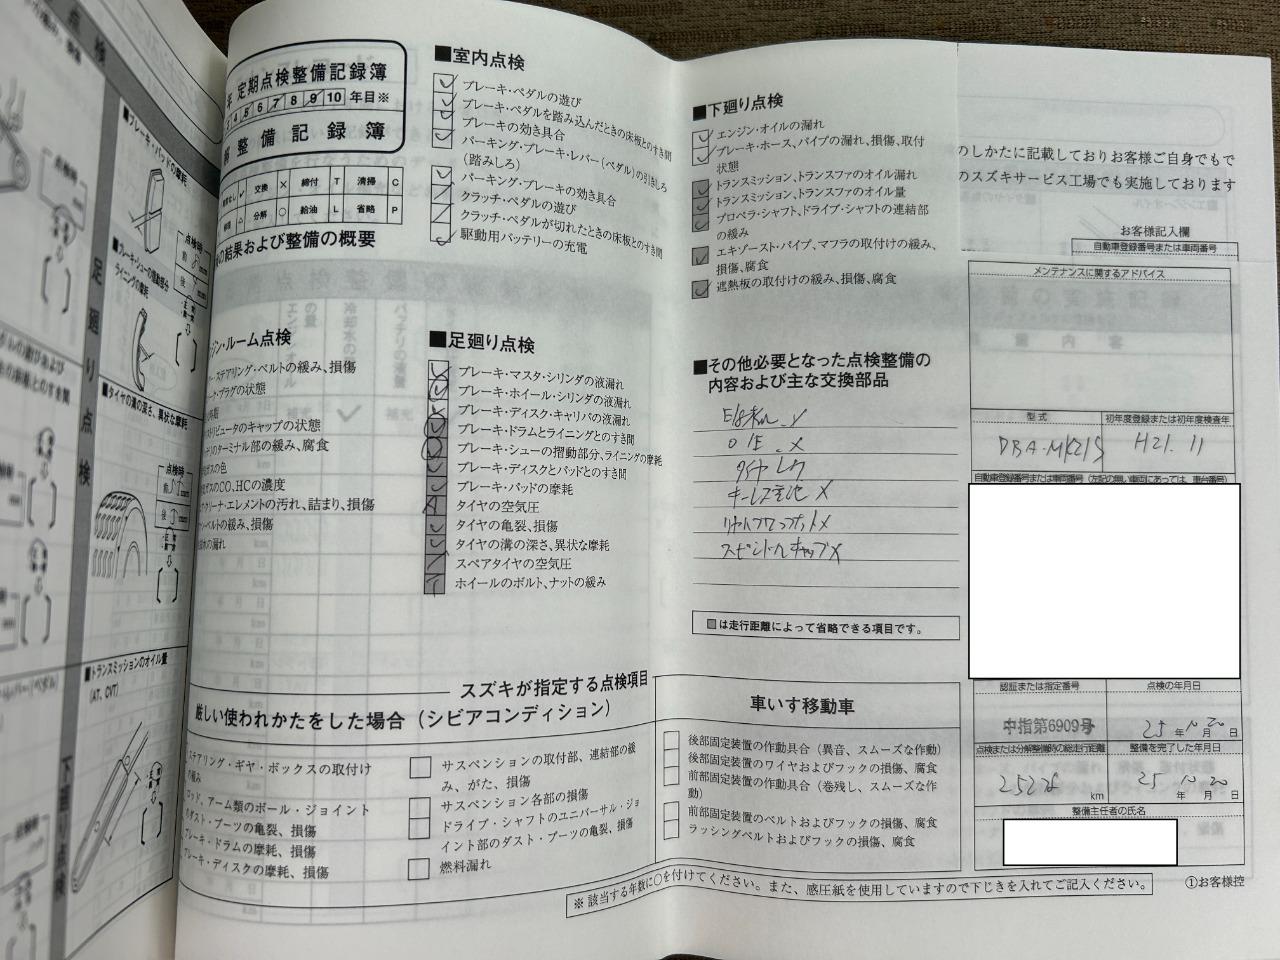 定期点検整備記録簿
4 5 6 7 8 9 10 年目※
整備記録簿
交換 ✕ 締付 T 清掃 C
分解 ○ 給油 L 省略 P
の結果および整備の概要
ジン・ルーム点検
ステアリング・ベルトの緩み、損傷
プラグの状態
ストリビュータのキャップの状態
のターミナル部の緩み、腐食
ガスの色
ガスのCO、HCの濃度
クリーナ・エレメントの汚れ、詰まり、損傷
ベルトの緩み、損傷
水の漏れ
■室内点検
ブレーキ・ペダルの遊び
ブレーキ・ペダルを踏み込んだときの床板とのすき間
ブレーキの効き具合
パーキング・ブレーキ・レバー(ペダル)の引きしろ
(踏みしろ)
パーキング・ブレーキの効き具合
クラッチ・ペダルの遊び
クラッチ・ペダルが切れたときの床板とのすき間
駆動用バッテリーの充電
■足廻り点検
ブレーキ・マスタ・シリンダの液漏れ
ブレーキ・ホイール・シリンダの液漏れ
ブレーキ・ディスク・キャリパの液漏れ
ブレーキ・ドラムとライニングとのすき間
ブレーキ・シューの摺動部分、ライニングの摩耗
ブレーキ・ディスクとパッドとのすき間
ブレーキ・パッドの摩耗
タイヤの空気圧
タイヤの亀裂、損傷
タイヤの溝の深さ、異状な摩耗
スペアタイヤの空気圧
ホイールのボルト、ナットの緩み
■下廻り点検
エンジン・オイルの漏れ
ブレーキ・ホース、パイプの漏れ、損傷、取付
状態
トランスミッション、トランスファのオイル漏れ
トランスミッション、トランスファのオイル量
プロペラ・シャフト、ドライブ・シャフトの連結部
の緩み
エキゾースト・パイプ、マフラの取付けの緩み、
損傷、腐食
遮熱板の取付けの緩み、損傷、腐食
■その他必要となった点検整備の
内容および主な交換部品
O/E ✕
キーレス電池 ✕
スピンドルキャップ✕
■は走行距離によって省略できる項目です。
スズキが指定する点検項目
厳しい使われかたをした場合(シビアコンディション)
ステアリング・ギヤ・ボックスの取付け
の緩み
ロッド、アーム類のボール・ジョイント
のダスト・ブーツの亀裂、損傷
ブレーキ・ドラムの摩耗、損傷
ブレーキ・ディスクの摩耗、損傷
サスペンションの取付部、連結部の緩
み、がた、損傷
サスペンション各部の損傷
ドライブ・シャフトのユニバーサル・ジョ
イント部のダスト・ブーツの亀裂、損傷
燃料漏れ
車いす移動車
後部固定装置の作動具合(異音、スムーズな作動)
後部固定装置のワイヤおよびフックの損傷、腐食
前部固定装置の作動具合(巻残し、スムーズな作
動)
前部固定装置のベルトおよびフックの損傷、腐食
ラッシングベルトおよびフックの損傷、腐食
※該当する年数に○を付けてください。また、感圧紙を使用していますので下じきを入れてご記入ください。
①お客様控
のしかたに記載しておりお客様ご自身でもで
のスズキサービス工場でも実施しております
お客様記入欄
自動車登録番号または車両番号
メンテナンスに関するアドバイス
型式
初年度登録または初年度検査年
DBA-MK21S
H21.11
自動車登録番号または車両番号(左記の無い車両にあっては、車台番号)
認証または指定番号
点検の年月日
中指第6909号
25年10月20日
点検または分解整備時の総走行距離
整備を完了した年月日
km
25年10月20日
整備主任者の氏名
■ブレーキ・パッドの摩耗
■ブレーキ・シューの摺動部分
ライニングの摩耗
■タイヤの溝の深さ、異状な摩耗
■トランスミッションのオイル量
(AT、CVT)
足廻り点検
下廻り点検
点検時